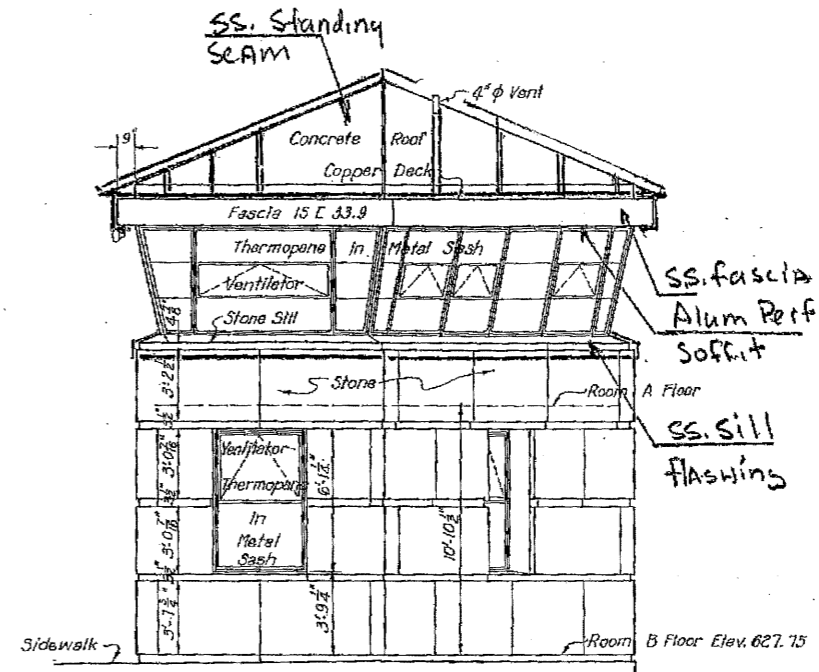 SS. Standing
SEAM
4" φ Vent
9"
Concrete Roof
Copper Deck
Fascia 15 [ 33.9
Thermopane In Metal Sash
Ventilator
Stone Sill
SS. fascia
Alum Perf
Soffit
Stone
Room A Floor
SS. Sill
flashing
Ventilator
Thermopane
In
Metal
Sash
6'-1¼"
10'-10½"
3'-9¼"
Sidewalk
Room B Floor Elev. 627.75